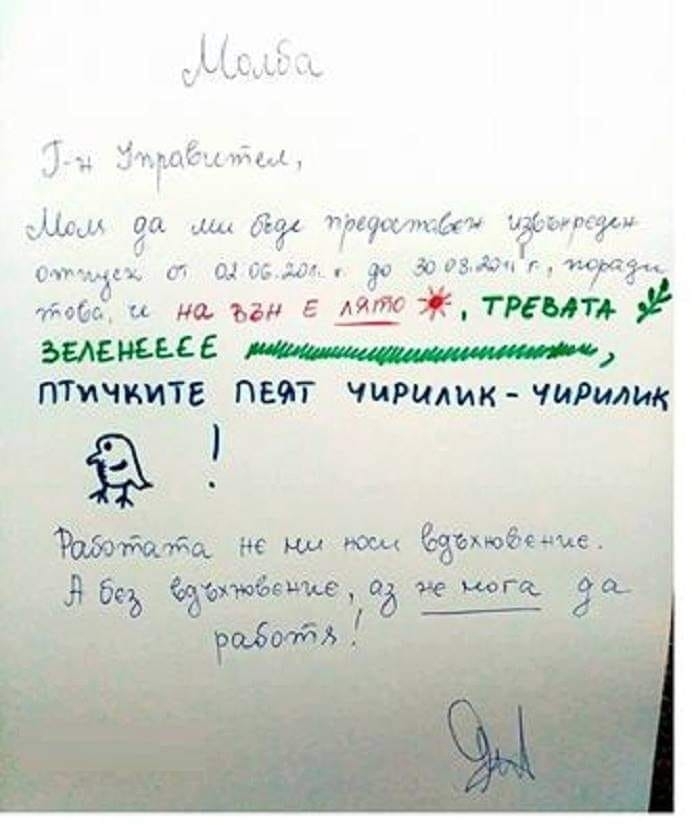 Молба
Г-н Управител,
Моля да ми бъде предоставен извънреден
отпуск от 02.06.2011 г. до 30.08.2011 г., поради
това, че НА ВЪН Е ЛЯТО, ТРЕВАТА
ЗЕЛЕНЕЕЕЕ ,
ПТИЧКИТЕ ПЕЯТ ЧИРИЛИК - ЧИРИЛИК
!
Работата не ми носи вдъхновение.
А без вдъхновение, аз не мога да
работя!